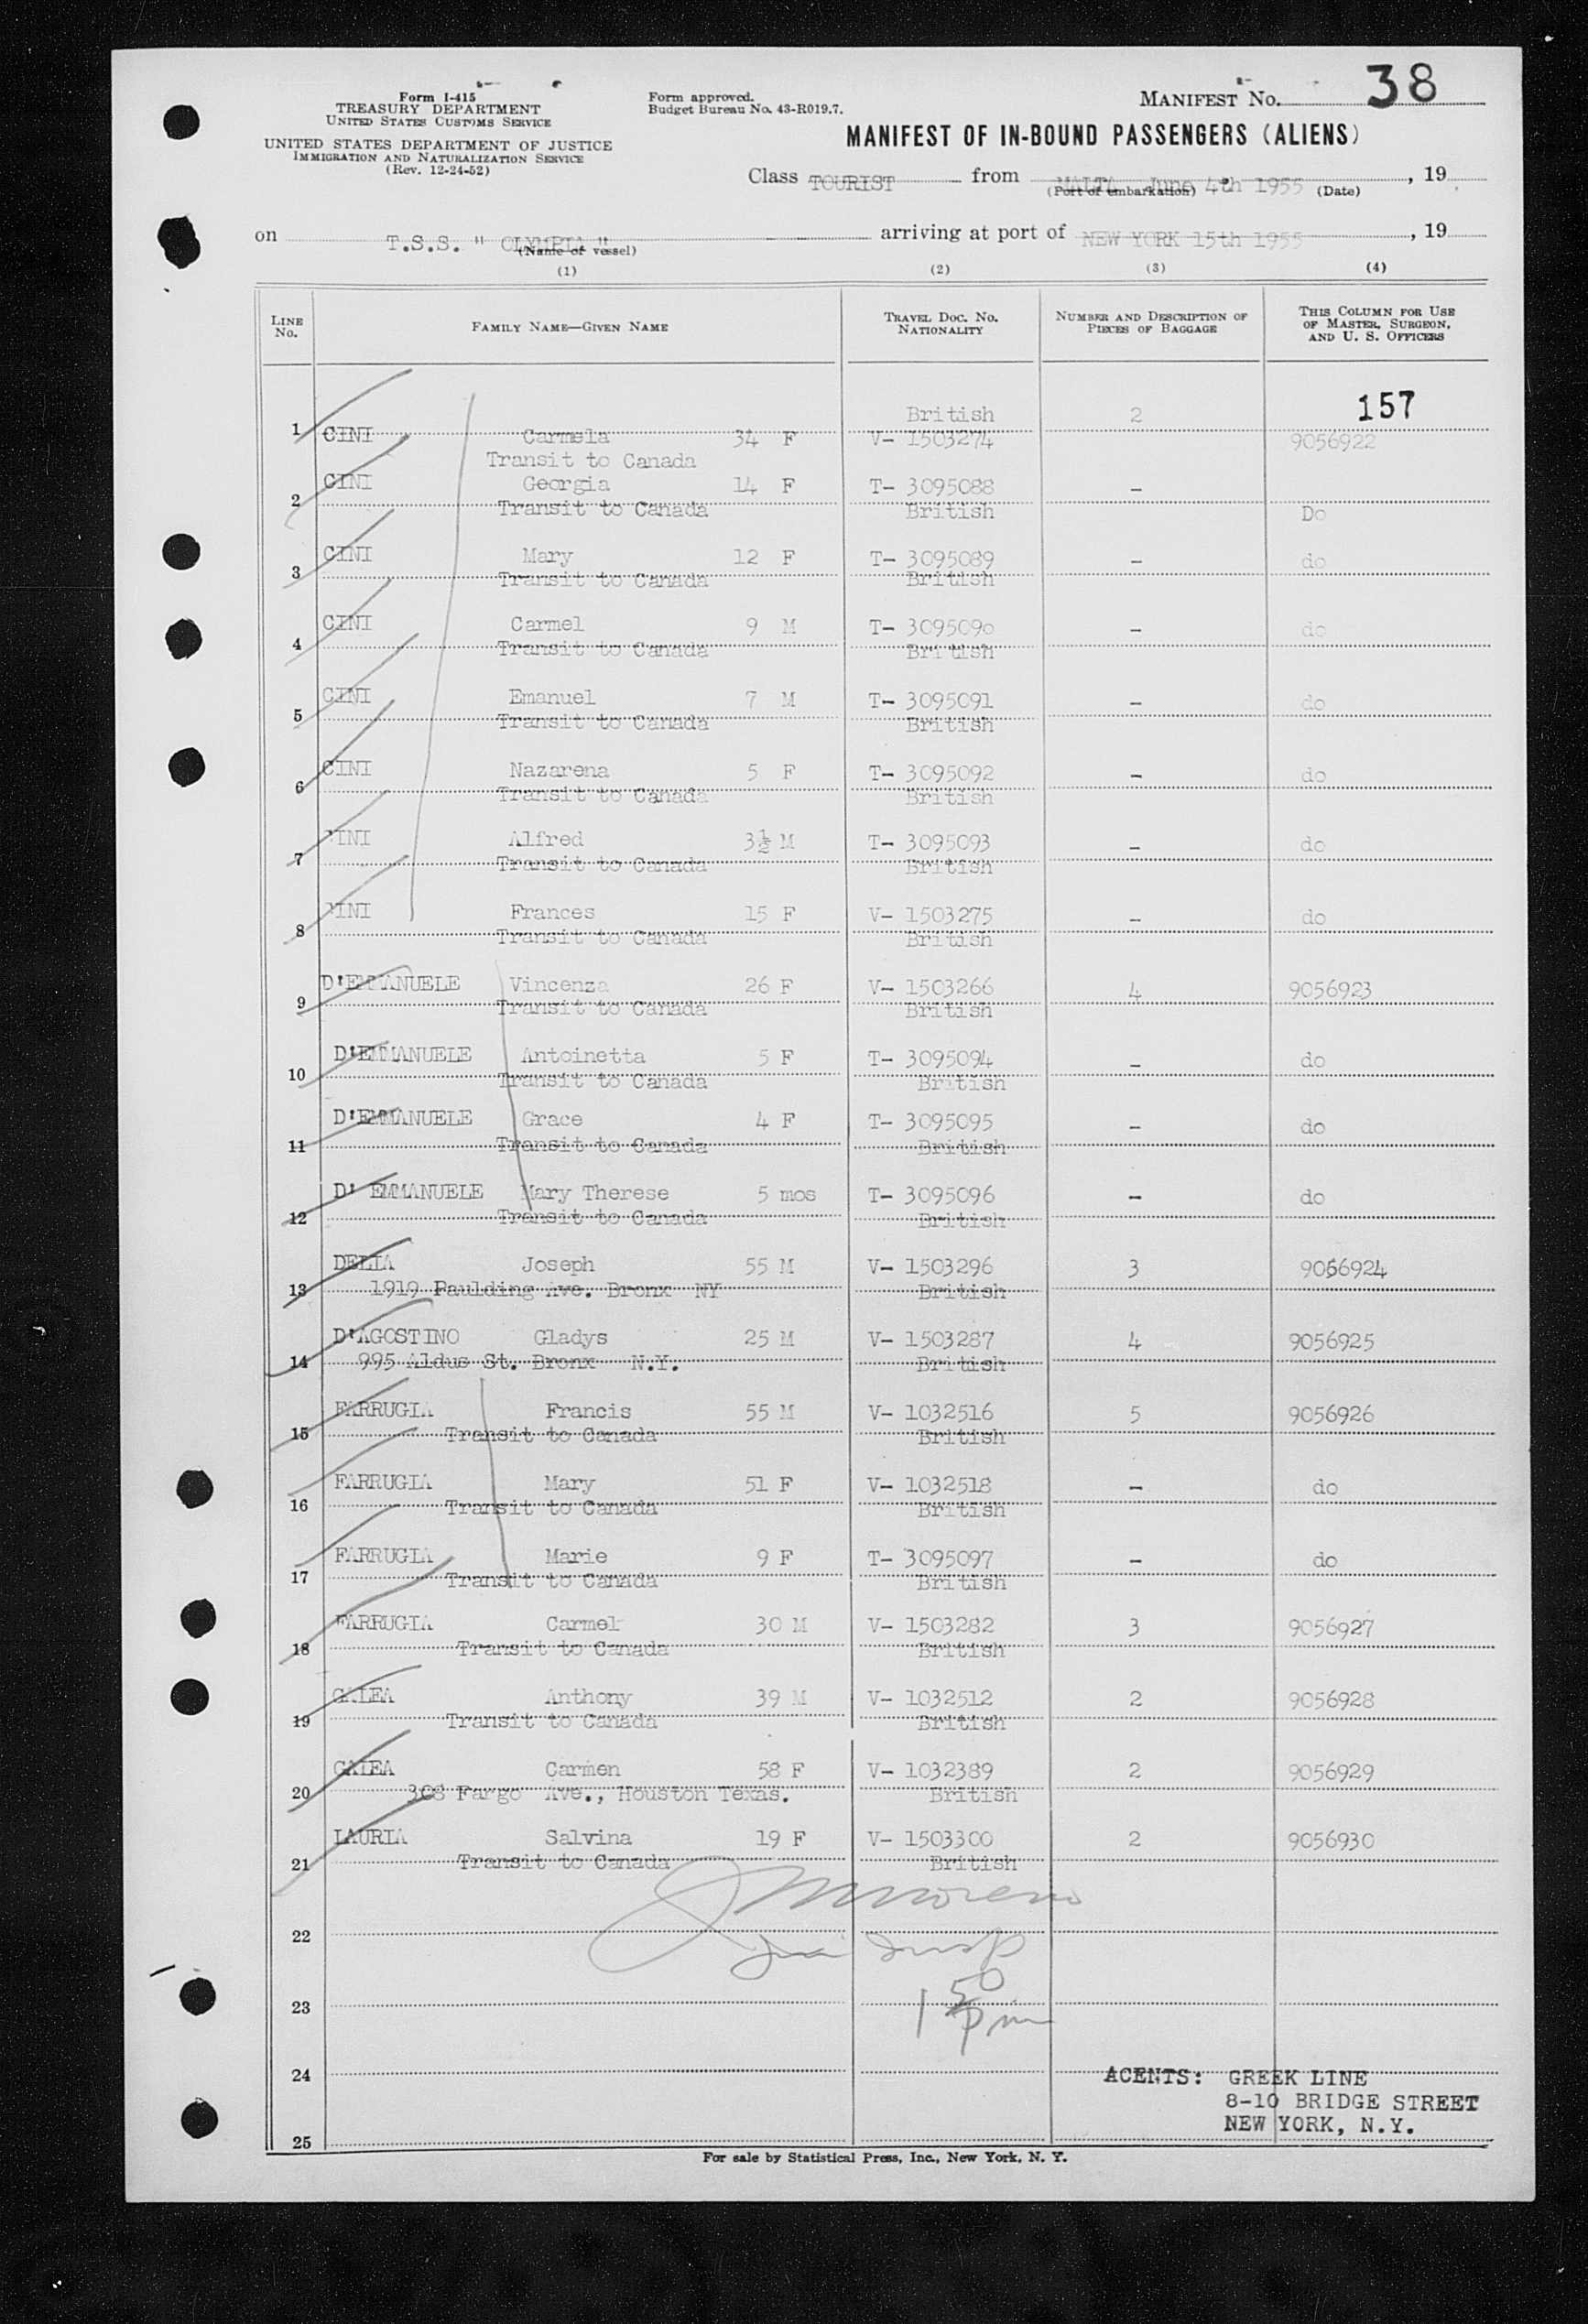 38
Form I-415
TREASURY DEPARTMENT
UNITED STATES CUSTOMS SERVICE
UNITED STATES DEPARTMENT OF JUSTICE
IMMIGRATION AND NATURALIZATION SERVICE
(Rev. 12-24-52)
Form approved.
Budget Bureau No. 43-R019.7.
MANIFEST No.
MANIFEST OF IN-BOUND PASSENGERS (ALIENS)
Class TOURIST from MALTA June 4th 1955, 19
(Port of embarkation) (Date)
on T.S.S. " OLYMPIA " arriving at port of NEW YORK 15th 1955, 19
(Name of vessel)
(1) (2) (3) (4)
LINE No. FAMILY NAME—GIVEN NAME TRAVEL DOC. No. NATIONALITY NUMBER AND DESCRIPTION OF PIECES OF BAGGAGE THIS COLUMN FOR USE OF MASTER, SURGEON, AND U. S. OFFICERS
British 2 157
1 CINI Carmela 34 F V- 1503274 9056922
Transit to Canada
2 CINI Georgia 14 F T- 3095088 -
Transit to Canada British Do
3 CINI Mary 12 F T- 3095089 - do
Transit to Canada British
4 CINI Carmel 9 M T- 3095090 - do
Transit to Canada British
5 CINI Emanuel 7 M T- 3095091 - do
Transit to Canada British
6 CINI Nazarena 5 F T- 3095092 - do
Transit to Canada British
7 INI Alfred 3½ M T- 3095093 - do
Transit to Canada British
8 INI Frances 15 F V- 1503275 - do
Transit to Canada British
9 D'EMMANUELE Vincenza 26 F V- 1503266 4 9056923
Transit to Canada British
10 D'EMMANUELE Antoinetta 5 F T- 3095094 - do
Transit to Canada British
11 D'EMMANUELE Grace 4 F T- 3095095 - do
Transit to Canada British
12 D' EMMANUELE Mary Therese 5 mos T- 3095096 - do
Transit to Canada British
13 DELIA Joseph 55 M V- 1503296 3 9056924
1919 Paulding Ave. Bronx NY British
14 D'AGOSTINO Gladys 25 M V- 1503287 4 9056925
995 Aldus St. Bronx N.Y. British
15 FARRUGIA Francis 55 M V- 1032516 5 9056926
Transit to Canada British
16 FARRUGIA Mary 51 F V- 1032518 - do
Transit to Canada British
17 FARRUGIA Marie 9 F T- 3095097 - do
Transit to Canada British
18 FARRUGIA Carmel 30 M V- 1503282 3 9056927
Transit to Canada British
19 GALEA Anthony 39 M V- 1032512 2 9056928
Transit to Canada British
20 GALEA Carmen 58 F V- 1032389 2 9056929
308 Fargo Ave., Houston Texas. British
21 LAURIA Salvina 19 F V- 1503300 2 9056930
Transit to Canada British
22
Insp
23
1 50 pm
24
AGENTS: GREEK LINE
8-10 BRIDGE STREET
NEW YORK, N.Y.
25
For sale by Statistical Press, Inc., New York, N. Y.